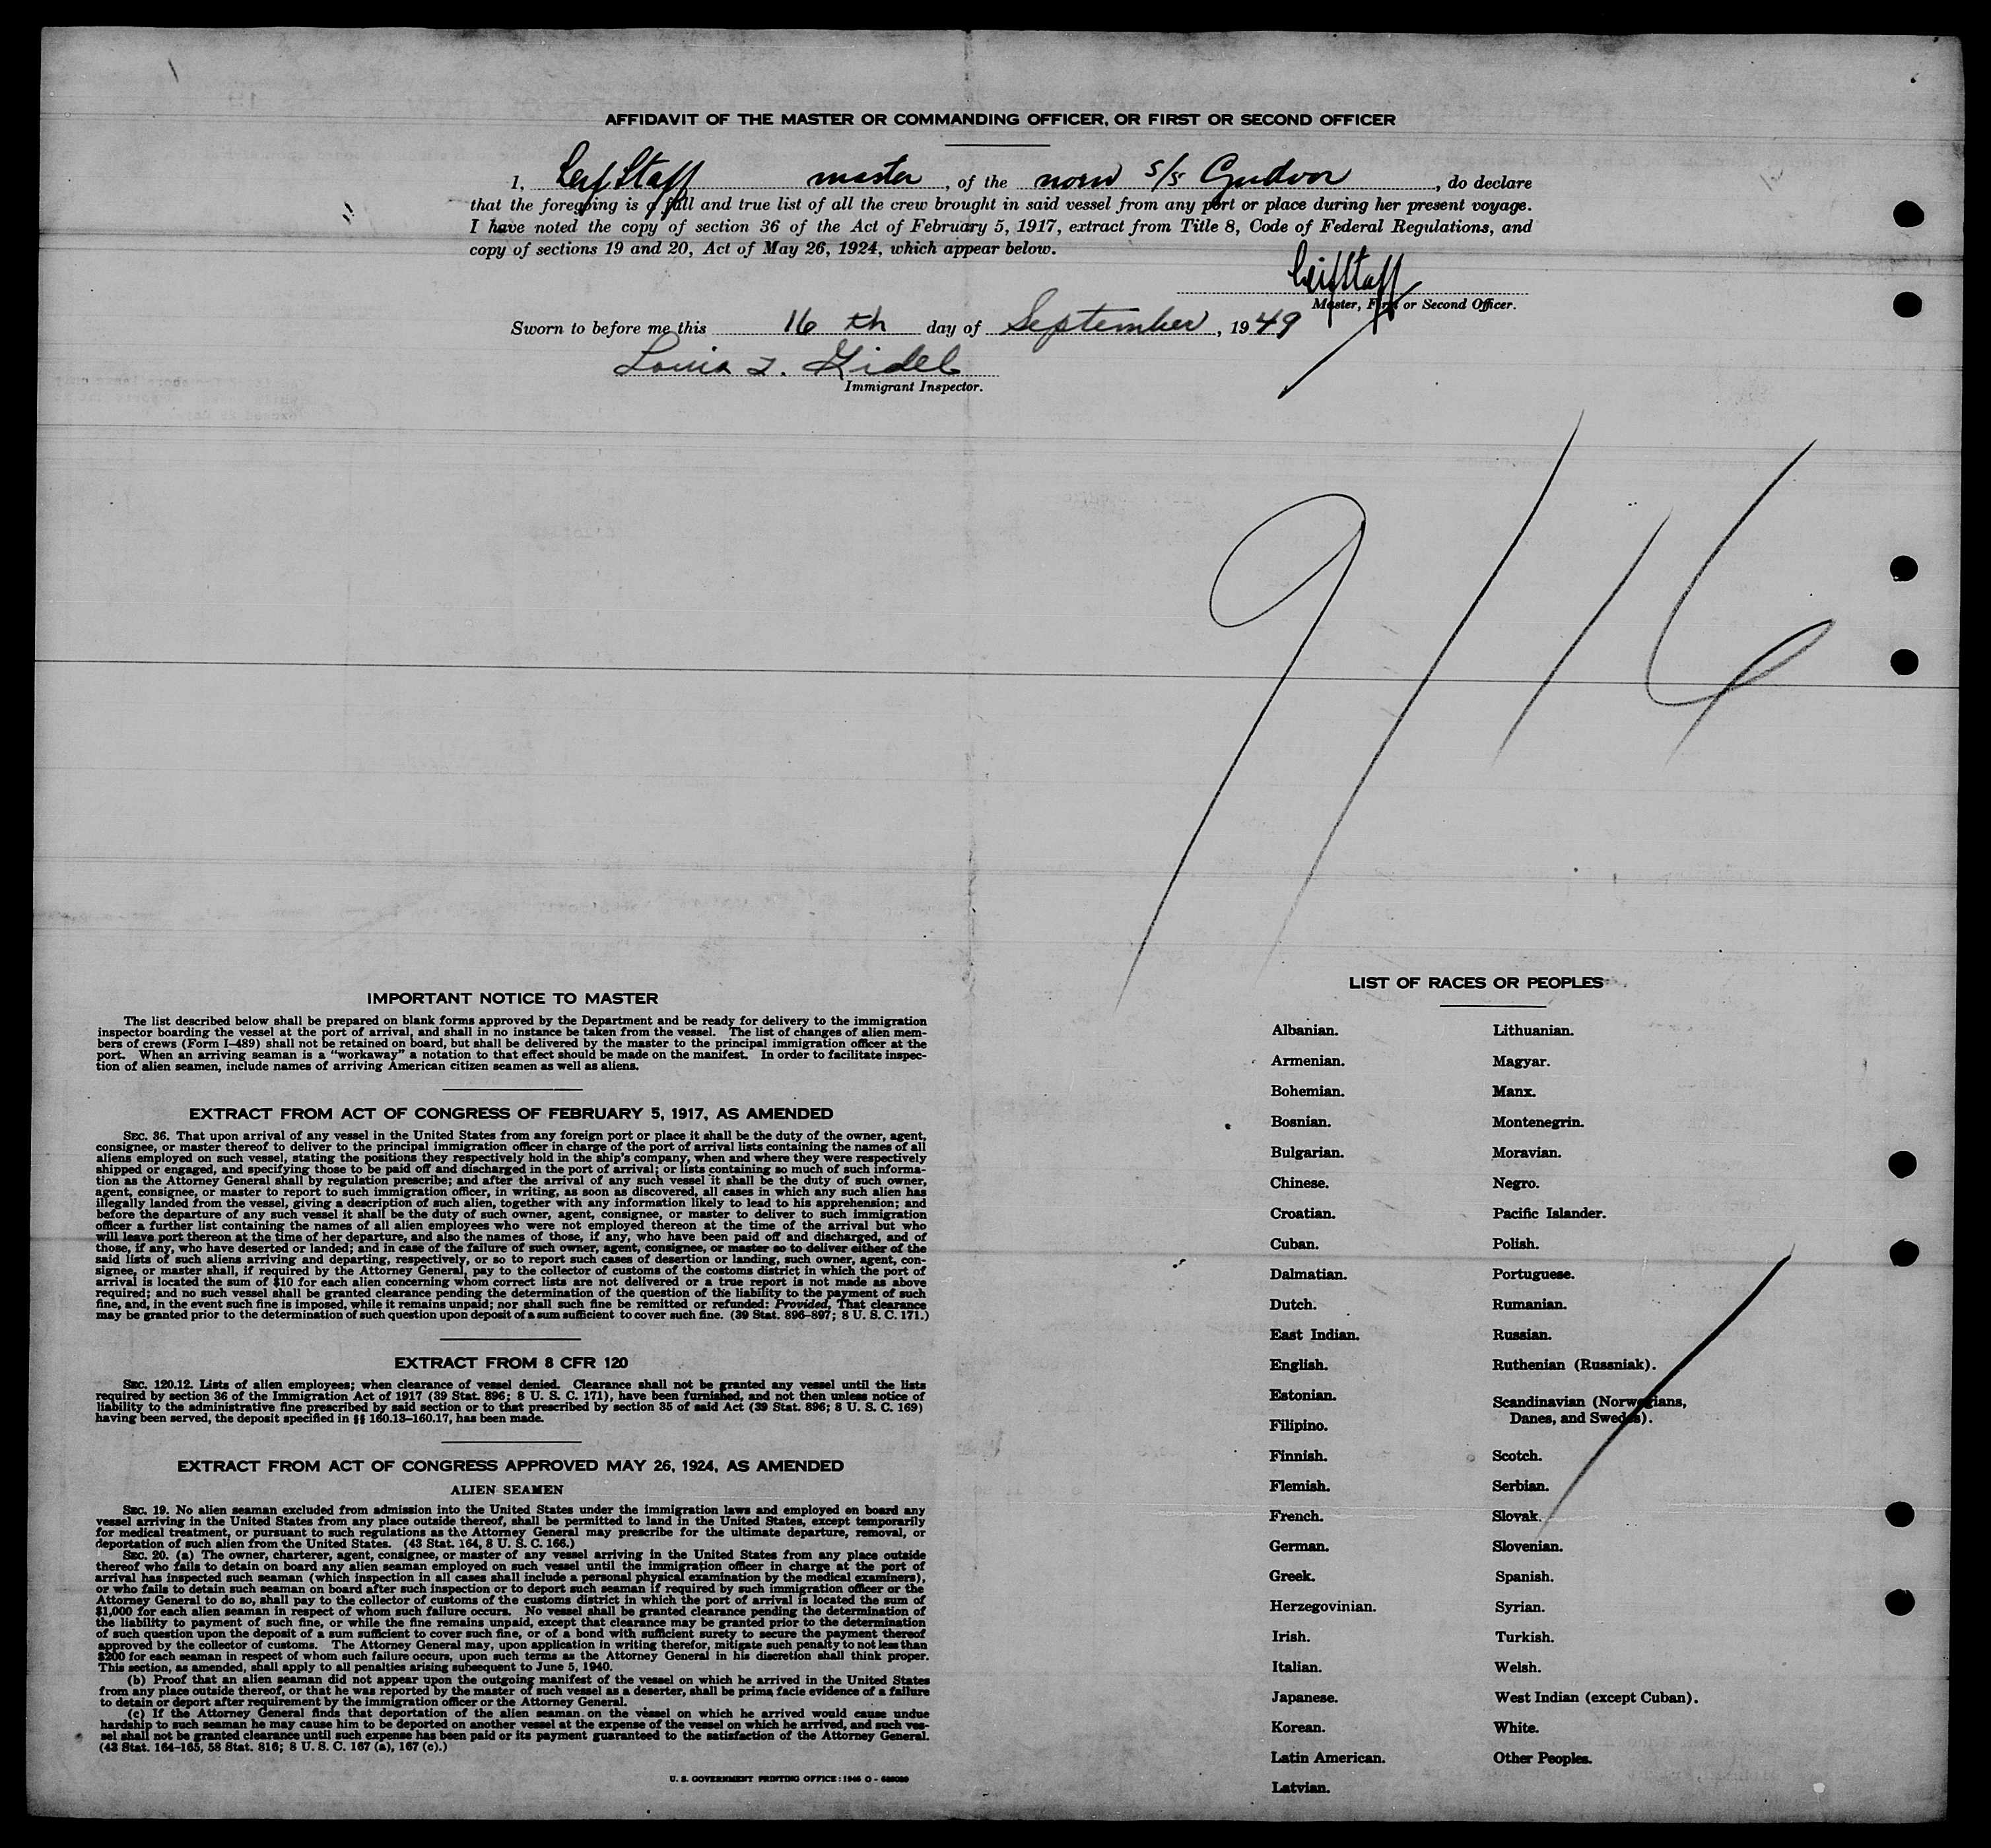 AFFIDAVIT OF THE MASTER OR COMMANDING OFFICER, OR FIRST OR SECOND OFFICER
I, Leif Staff master, of the norw s/s Gudvor, do declare
that the foregoing is a full and true list of all the crew brought in said vessel from any port or place during her present voyage.
I have noted the copy of section 36 of the Act of February 5, 1917, extract from Title 8, Code of Federal Regulations, and
copy of sections 19 and 20, Act of May 26, 1924, which appear below.
Leif Staff
Master, First or Second Officer.
Sworn to before me this 16 th day of September, 1949
Louis
Immigrant Inspector.
9/16
IMPORTANT NOTICE TO MASTER
The list described below shall be prepared on blank forms approved by the Department and be ready for delivery to the immigration
inspector boarding the vessel at the port of arrival, and shall in no instance be taken from the vessel. The list of changes of alien mem-
bers of crews (Form I-489) shall not be retained on board, but shall be delivered by the master to the principal immigration officer at the
port. When an arriving seaman is a "workaway" a notation to that effect should be made on the manifest. In order to facilitate inspec-
tion of alien seamen, include names of arriving American citizen seamen as well as aliens.
EXTRACT FROM ACT OF CONGRESS OF FEBRUARY 5, 1917, AS AMENDED
SEC. 36. That upon arrival of any vessel in the United States from any foreign port or place it shall be the duty of the owner, agent,
consignee, or master thereof to deliver to the principal immigration officer in charge of the port of arrival lists containing the names of all
aliens employed on such vessel, stating the positions they respectively hold in the ship's company, when and where they were respectively
shipped or engaged, and specifying those to be paid off and discharged in the port of arrival; or lists containing so much of such informa-
tion as the Attorney General shall by regulation prescribe; and after the arrival of any such vessel it shall be the duty of such owner,
agent, consignee, or master to report to such immigration officer, in writing, as soon as discovered, all cases in which any such alien has
illegally landed from the vessel, giving a description of such alien, together with any information likely to lead to his apprehension; and
before the departure of any such vessel it shall be the duty of such owner, agent, consignee, or master to deliver to such immigration
officer a further list containing the names of all alien employees who were not employed thereon at the time of the arrival but who
will leave port thereon at the time of her departure, and also the names of those, if any, who have been paid off and discharged, and of
those, if any, who have deserted or landed; and in case of the failure of such owner, agent, consignee, or master so to deliver either of the
said lists of such aliens arriving and departing, respectively, or so to report such cases of desertion or landing, such owner, agent, con-
signee, or master shall, if required by the Attorney General, pay to the collector of customs of the customs district in which the port of
arrival is located the sum of $10 for each alien concerning whom correct lists are not delivered or a true report is not made as above
required; and no such vessel shall be granted clearance pending the determination of the question of the liability to the payment of such
fine, and, in the event such fine is imposed, while it remains unpaid; nor shall such fine be remitted or refunded: Provided, That clearance
may be granted prior to the determination of such question upon deposit of a sum sufficient to cover such fine. (39 Stat. 896-897; 8 U. S. C. 171.)
EXTRACT FROM 8 CFR 120
SEC. 120.12. Lists of alien employees; when clearance of vessel denied. Clearance shall not be granted any vessel until the lists
required by section 36 of the Immigration Act of 1917 (39 Stat. 896; 8 U. S. C. 171), have been furnished, and not then unless notice of
liability to the administrative fine prescribed by said section or to that prescribed by section 35 of said Act (39 Stat. 896; 8 U. S. C. 169)
having been served, the deposit specified in §§ 160.13-160.17, has been made.
EXTRACT FROM ACT OF CONGRESS APPROVED MAY 26, 1924, AS AMENDED
ALIEN SEAMEN
SEC. 19. No alien seaman excluded from admission into the United States under the immigration laws and employed on board any
vessel arriving in the United States from any place outside thereof, shall be permitted to land in the United States, except temporarily
for medical treatment, or pursuant to such regulations as the Attorney General may prescribe for the ultimate departure, removal, or
deportation of such alien from the United States. (43 Stat. 164, 8 U. S. C. 166.)
SEC. 20. (a) The owner, charterer, agent, consignee, or master of any vessel arriving in the United States from any place outside
thereof who fails to detain on board any alien seaman employed on such vessel until the immigration officer in charge at the port of
arrival has inspected such seaman (which inspection in all cases shall include a personal physical examination by the medical examiners),
or who fails to detain such seaman on board after such inspection or to deport such seaman if required by such immigration officer or the
Attorney General to do so, shall pay to the collector of customs of the customs district in which the port of arrival is located the sum of
$1,000 for each alien seaman in respect of whom such failure occurs. No vessel shall be granted clearance pending the determination of
the liability to payment of such fine, or while the fine remains unpaid, except that clearance may be granted prior to the determination
of such question upon the deposit of a sum sufficient to cover such fine, or of a bond with sufficient surety to secure the payment thereof
approved by the collector of customs. The Attorney General may, upon application in writing therefor, mitigate such penalty to not less than
$200 for each seaman in respect of whom such failure occurs, upon such terms as the Attorney General in his discretion shall think proper.
This section, as amended, shall apply to all penalties arising subsequent to June 5, 1940.
(b) Proof that an alien seaman did not appear upon the outgoing manifest of the vessel on which he arrived in the United States
from any place outside thereof, or that he was reported by the master of such vessel as a deserter, shall be prima facie evidence of a failure
to detain or deport after requirement by the immigration officer or the Attorney General.
(c) If the Attorney General finds that deportation of the alien seaman on the vessel on which he arrived would cause undue
hardship to such seaman he may cause him to be deported on another vessel at the expense of the vessel on which he arrived, and such ves-
sel shall not be granted clearance until such expense has been paid or its payment guaranteed to the satisfaction of the Attorney General.
(43 Stat. 164-165, 58 Stat. 816; 8 U. S. C. 167 (a), 167 (c).)
U. S. GOVERNMENT PRINTING OFFICE: 1946 O -
LIST OF RACES OR PEOPLES
Albanian.
Armenian.
Bohemian.
Bosnian.
Bulgarian.
Chinese.
Croatian.
Cuban.
Dalmatian.
Dutch.
East Indian.
English.
Estonian.
Filipino.
Finnish.
Flemish.
French.
German.
Greek.
Herzegovinian.
Irish.
Italian.
Japanese.
Korean.
Latin American.
Latvian.
Lithuanian.
Magyar.
Manx.
Montenegrin.
Moravian.
Negro.
Pacific Islander.
Polish.
Portuguese.
Rumanian.
Russian.
Ruthenian (Russniak).
Scandinavian (Norwegians,
Danes, and Swedes).
Scotch.
Serbian.
Slovak.
Slovenian.
Spanish.
Syrian.
Turkish.
Welsh.
West Indian (except Cuban).
White.
Other Peoples.